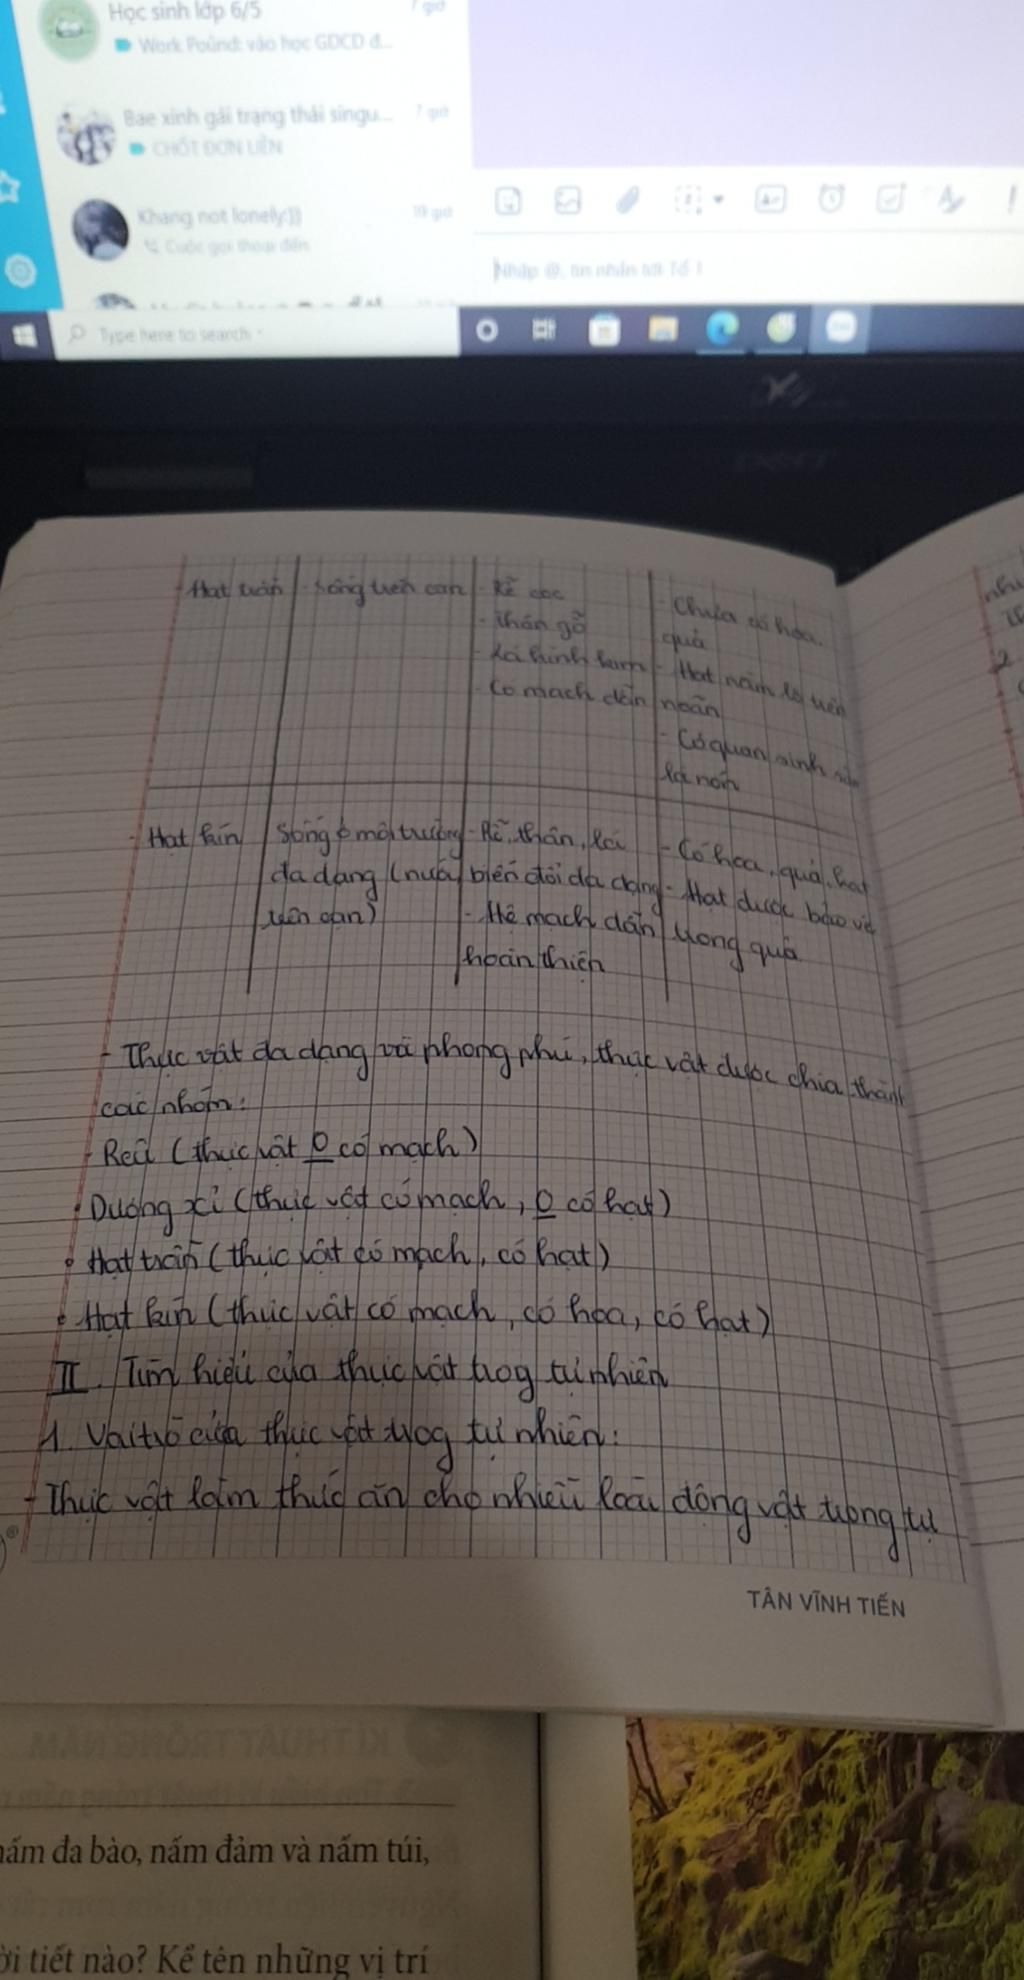 Học sinh lớp 6/5
7 giờ
Work Pound: vào học GDCD đ...
Bae xinh gái trạng thái singu...
7 giờ
CHỐT ĐƠN LIỀN
Khang not lonely:))
19 giờ
Cuộc gọi thoại đến
Nhập @, tin nhắn tới Tổ 1
Type here to search
Hạt trần
- Sống trên cạn
- Rễ cọc
- Thân gỗ
- Lá hình kim
- Có mạch dẫn
- Chưa có hoa,
quả
- Hạt nằm lộ trên
noãn
- Cơ quan sinh sản
là nón
- Hạt kín
Sống ở môi trường
đa dạng (nước,
trên cạn)
- Rễ, thân, lá
biến đổi đa dạng
- Hệ mạch dẫn
hoàn thiện
- Có hoa, quả, hạt
- Hạt được bảo vệ
trong quả
- Thực vật đa dạng và phong phú, thực vật được chia thành
các nhóm:
Rêu (thực vật 0 có mạch)
Dương xỉ (thực vật có mạch, 0 có hạt)
Hạt trần (thực vật có mạch, có hạt)
Hạt kín (thực vật có mạch, có hoa, có hạt)
II. Tìm hiểu của thực vật trog tự nhiên
1. Vai trò của thực vật trog tự nhiên:
- Thực vật làm thức ăn cho nhiều loài động vật trong tự
TÂN VĨNH TIẾN
nấm đa bào, nấm đảm và nấm túi,
tiết nào? Kể tên những vị trí